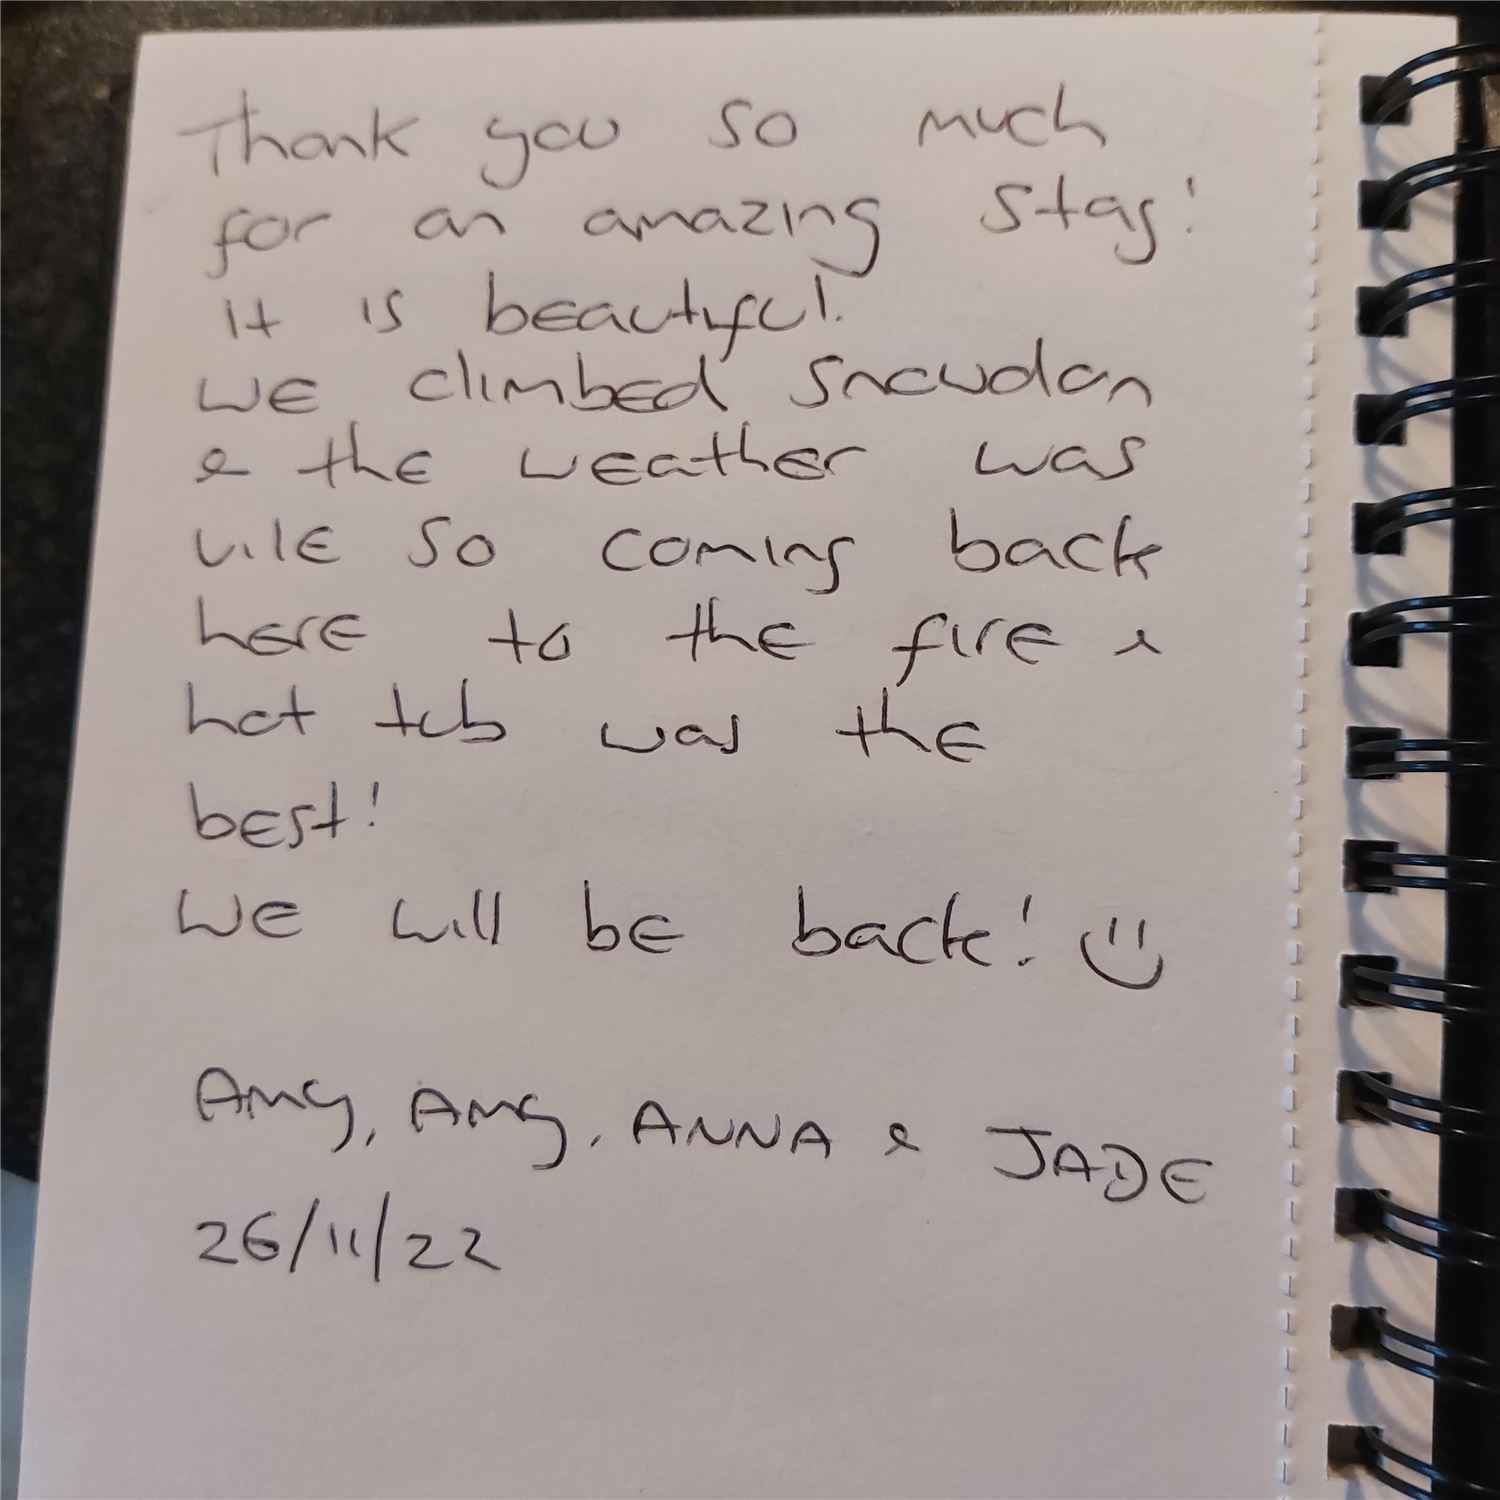 Thank you so much
for an amazing stay!
it is beautiful.
we climbed snowdon
& the weather was
vile so coming back
here to the fire &
hot tub was the
best!
we will be back! :)
AMY, AMY, ANNA & JADE
26/11/22